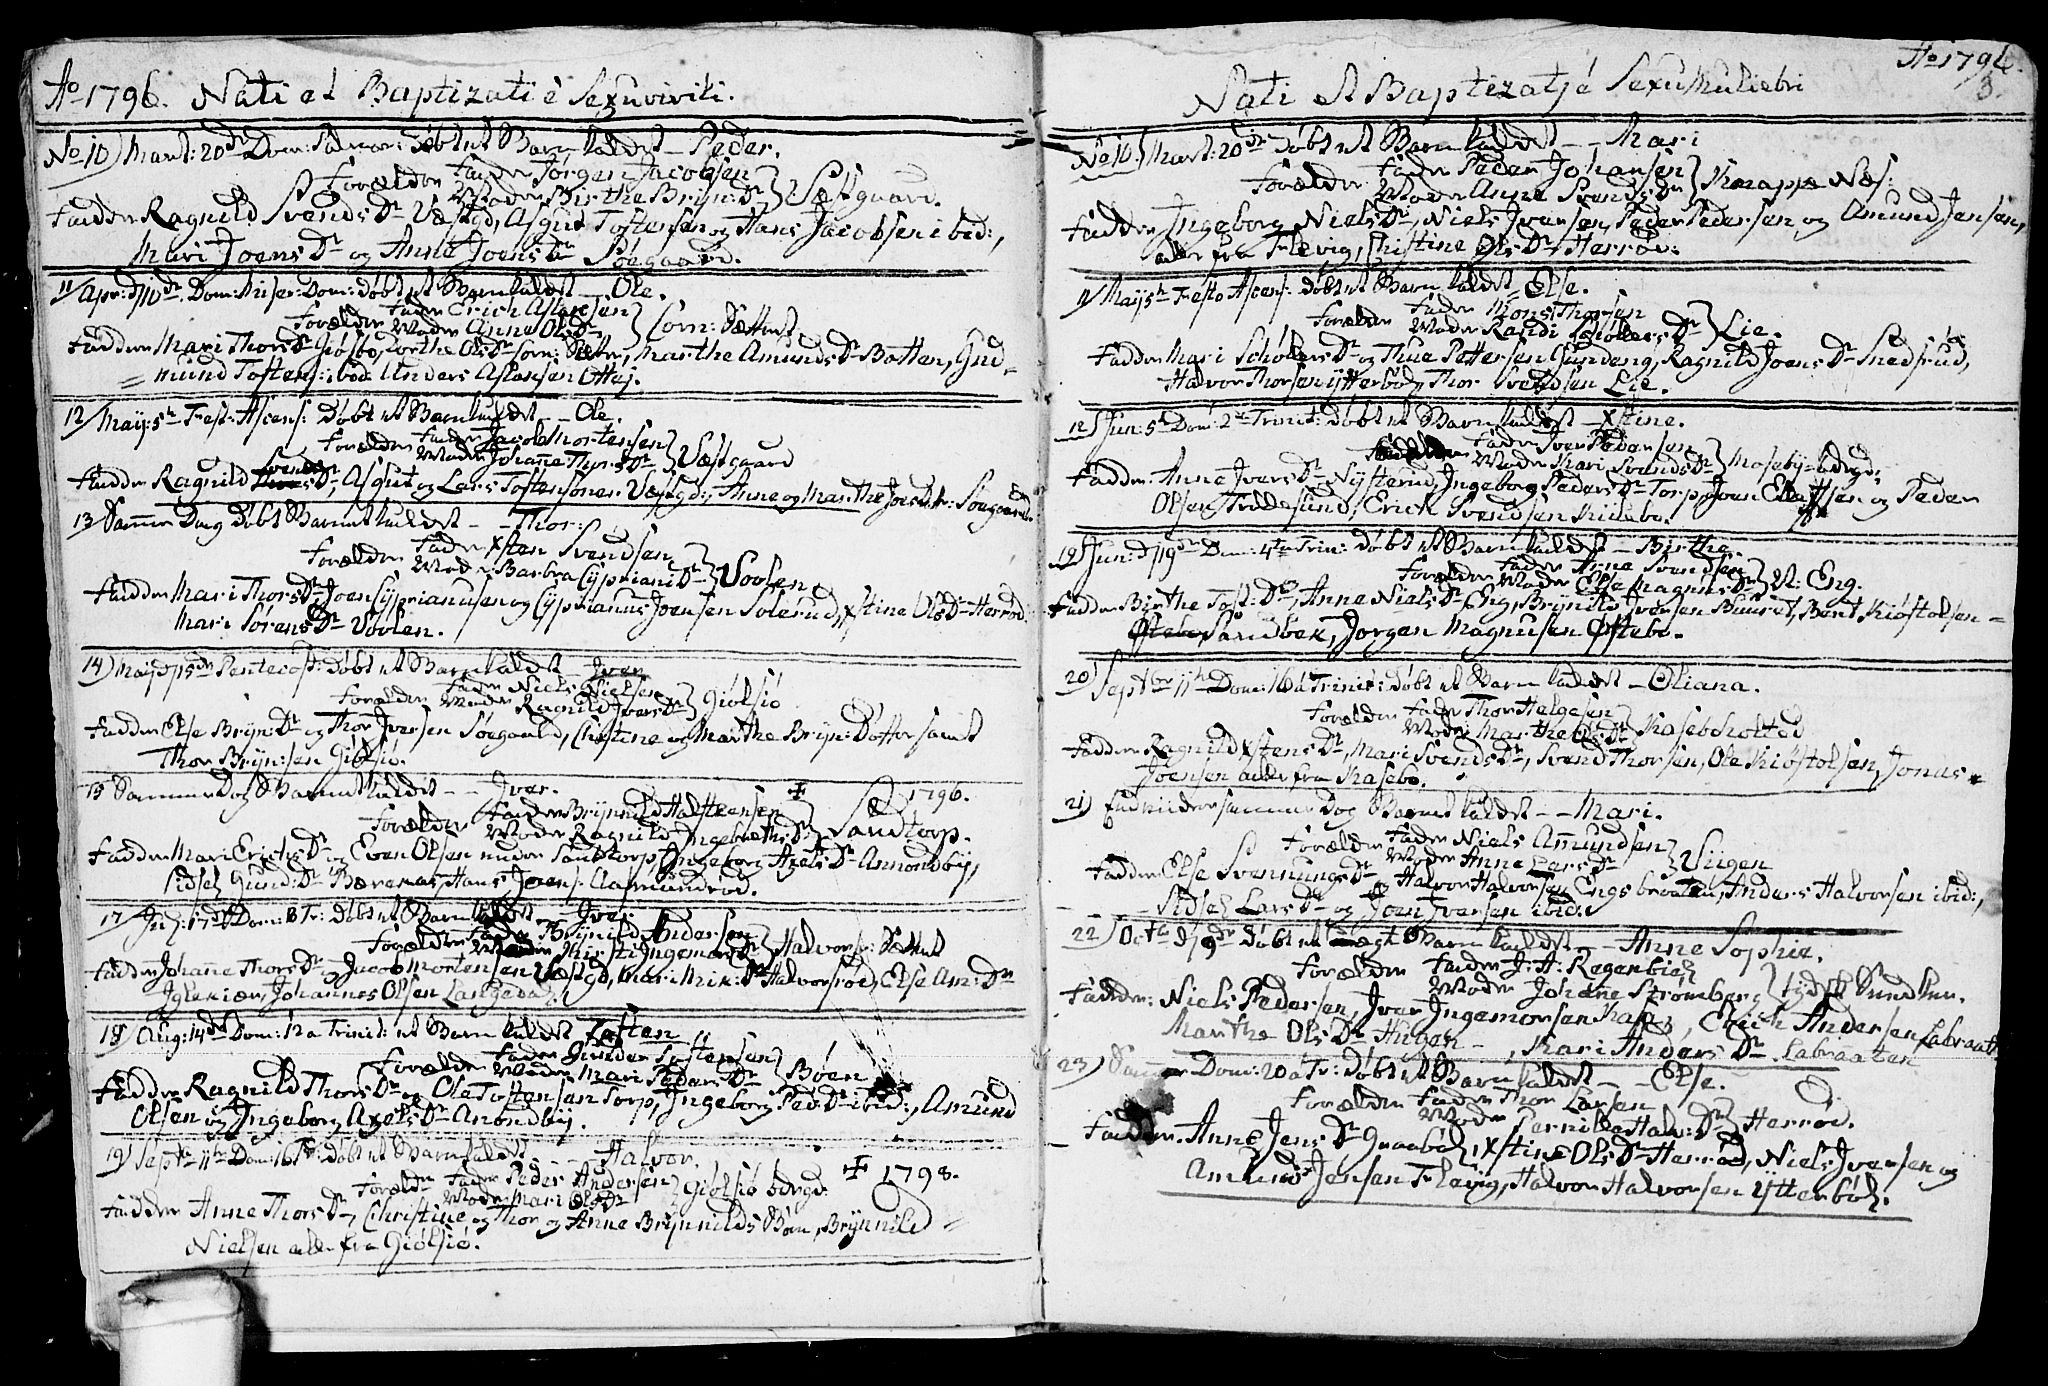 Ao 1796. Nati et Baptizati è Sexu virili.
No 10) Mart: 20de Dom: Palmar: døbt et Barn kaldet – Peder.
Forælder Fader Jørgen Jacobsen
Moder Birthe Bryn: Dr } Vestgaard.
Fadder Ragnild Svends Dr Væstgd, Asgut Tostensen og Hans Jacobsen ibid:,
Mari Joens Dr og Anne Joens Dr Søegaard.
11/ Apr: d 10de Dom: Miser: Dom: døbt et Barn kaldet – Ole.
Forælder Fader Erich Aslagsen
Moder Anne Ols Dr } Sorn: Sættret
Fadder Mari Thors Dr Giølbo, Dorthe Ols Dr Sorn: Sætter, Marthe Amunds Dr Batten, Gud=
=mund Tostens: ibid: Anders Aslagsen Ottej.
12/ Maij: 5te Fest: Ascens: Døbt et Barn kaldet – – Ole.
Forælder Fader Jacob Mortensen
Moder Johanne Thors Dr } Væstgaard
Fadder Ragnild Svends Dr, Asgut og Lars Tostensøner Væstgd:, Anne og Marthe Joensdtr: Søegaard.
13 Samme Dag døbt Barnet kaldet – – Thor:
Forælder Fader Xsten Svendsen
Moder Barbra Cypriani Dr } Voolen
Fadder Mari Thors Dr, Joen Cyprianusen og Cyprianus Joensen Solerud, Xstine Ols Dr Herrød.
Mari Sørens Dr Voolen.
14) Maij d 15de Pentecost: døbt et Barn kaldet – Iver
Forælder Fader Niels Nielsen
Moder Ragnild Ivers Dr } Giølsiø
Fadder Else Bryn: Dr og Thor Iversen Søegaard, Christine og Marthe Bryn: Døttr samt
Thor Bryn: sen Giølsiø.
15 Samme Dag Barnet kaldet – – Iver.
Forælder Fader Brynild Halstensen
Moder Ragnild Ingebreths Dr } Sandtorp.
1796.
Fadder Mari Erichs Dr og Even Olsen nedre Sandtorp, Ingeborg Axels Dr Amondbÿ,
Sidsel Gund: Dr Børekas, Hans Joens: Aamundrød.
17/ Julj: 17de Dom: 8 Tr: Døbt et Barn kaldet – Iver
Forælder Fader Brynild Andersen
Moder Kirsti Ingemor Dr } Halvorsr: Sættret
Fadder Johanne Thors Dr, Jacob Mortensen Væstgd, Mari Mik: Dr Halvorsrød, Else Am: Dr
Iglekiær, Johannes Olsen Langedal.
18) Aug: 14de Dom: 12 a Trinit: et Barn kaldet Tosten
Forælder Fader Gunder Tostensen
Moder Mari Peders Dr } Bøen
Fadder Ragnild Thors Dr og Ole Tostensen Torp, Ingeborg Ped: Dr ibid:, Amund
Olsen og Ingeborg Axels Dr Amondbÿ.
19) Septbr 11te Dom: 16 Tr: døbt et Barn kaldet – – Halvor.
Forældr Fader Peder Andersen
Moder Mari Ols Dr } Giølsiø bdrgd:
1798.
Fadder Anne Thors Dr, Christine og Thor og Anne Brynnilds Børn, Brynnild=
Nielsen alle fra Giølsiø.
Ao 1796.
3.
Nati et Baptizatj è Sexu Muliebri
No 10. Mart: 20de døbt et Barn kaldet – – Mari
Forælder Fader Peder Johansen
Moder Anne Svends Dr } Knappe Næs.
Fadder Ingeborg Niels Dr, Niels Iversen, Peder Pedersen og Amund Jensen,
alle fra Flevig, Christine Ols Dr Herrød.
11/ Maij 5te Festo Ascens: døbt et Barn kaldet – Else.
Forælder Fader Mons Thorsen
Moder Randi Schølers Dr } Lie.
Fadder Mari Schølers Dr og Thue Pettersen Gundeng, Ragnild Joens Dr Snedsrud,
Halvor Thorsen Ytterbøl, Thor Svendsen Lie.
12) Jun: 5te Dom: 2 Trinit: døbt et Barn kaldet – Xstine.
Forælder Fader Iver Pedersen
Moder Mari Svends Dr } Mosebÿ
Fadder: Anne Ivers Dr Nysterud, Ingeborg Peders Dr Torp, Joen Ellefsen og Peder
Olsen Fredesund, Erick Svendsen Kiilebo.
19 Jun: d 19de Dom: 4ta Trin: døbt et Barn kaldet – Birthe.
Forælder Fader Arne Svendsen
Moder Else Magnus Dr } N: Eng.
Fadder Birthe Tost: Dr, Anne Niels Dr Eng, Brynild Iversen Buret, Bent Kiøstolsen=
Sandbek, Jørgen Magnusen Østebø.
20) Septbr 11te Dom: 16 a Trinit: døbt et Barn kaldet – Oliana.
Forælder Fader Thor Helgesen
Moder Marthe Ols Dr } Kasebseholted
Fadder Ragnild Xstens Dr, Mari Svends Dr, Svend Thorsen, Ole Kiøstolsen, Jonas
Joensen alle fra Kasebo.
21) samme Dag Barnet kaldet – – Mari.
Forælder Fader Niels Amundsen
Moder Anne Lars Dr } Viigen
Fadder Else Svennungs Dr og Halvor Halvorsen Engsbraaten, Anders Halvorsen ibid:,
– – Sidsel Lars Dr og Joen Iversen ibid:
22) Octbr d 9de døbt et uægt Barn kaldet – – Anne Sophie.
Forælder Fader J: A: Regenbiel
Moder Johane Strømberg } Tydsk
Fadder: Niels Pedersen, Iver Ingemorsen Kasa, Erich Andersen Labraat
Marthe Ols Dr Hugen –, Kari Anders Dr Labraaten
23) Samme Dom: 20 a Tr: døbt et Barn kaldet – – Else.
Forælder Fader Thor Larsen
Moder Pernille Halv: Dr } Herrød.
Fadder. Anne Jens Dr Graabøl, Xstine Ols Dr Herrød, Niels Iversen og
Amund Jensen Flavig, Halvor Halvorsen Ytterbøl.